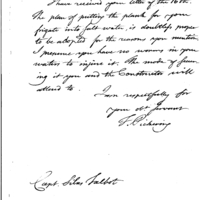 I have received your letter of the 16th.
The plan of putting the plank for your
frigate into salt water, is doubtless proper
to be adopted for the reasons you mention.
I presume you have no worms in your
waters to injure it. The mode of
ing it you and the Constructor will
attend to.
I am respectfully for
your obt servant
T. Pickering
Capt. Silas Talbot